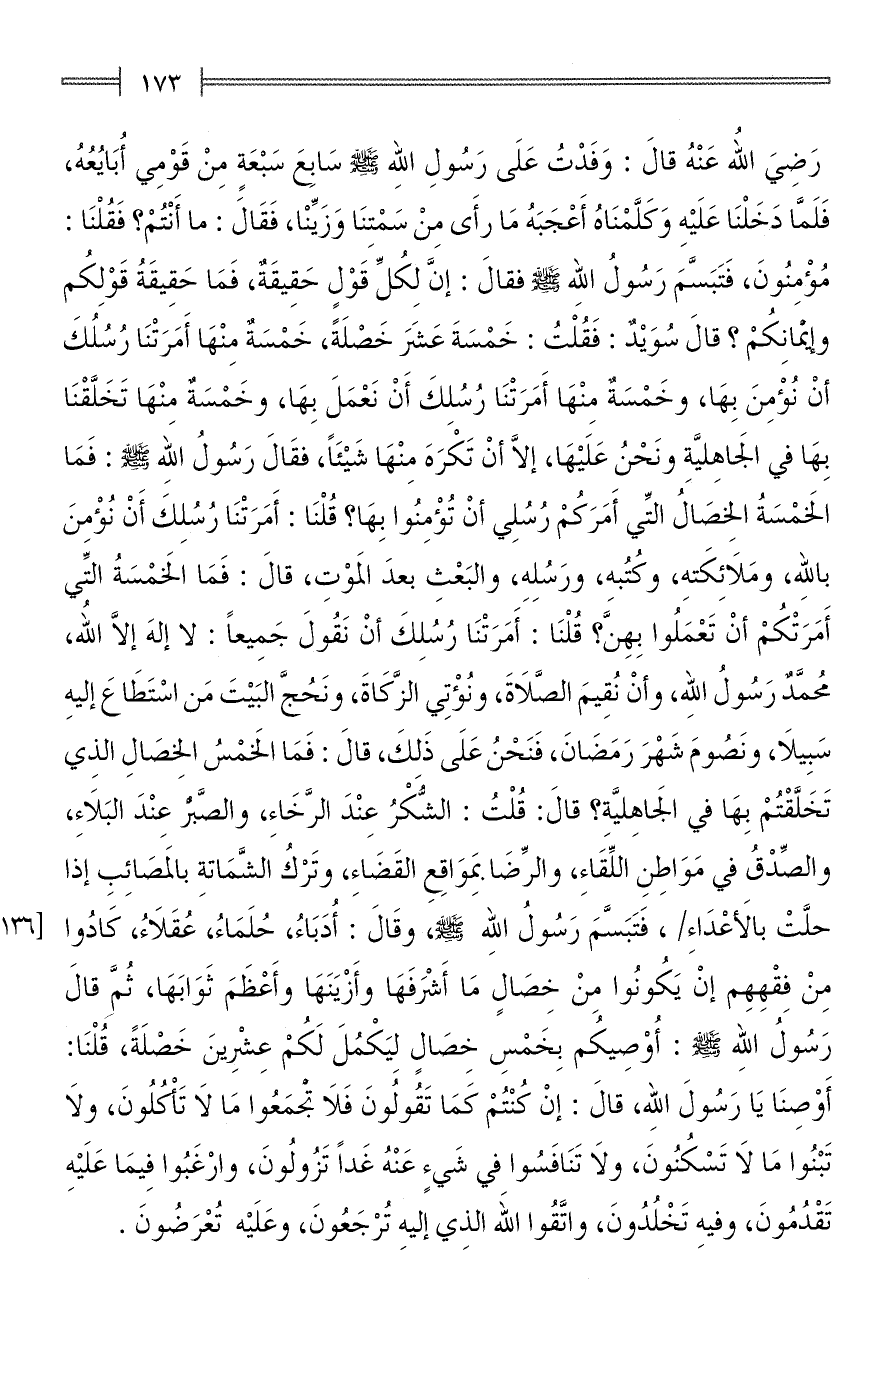 ١٧٣
رَضِيَ اللهُ عَنْهُ قالَ : وَفَدْتُ عَلَى رَسُولِ اللهِ ﷺ سَابِعَ سَبْعَةٍ مِنْ قَوْمِي أُبَايُعُهُ،
فَلَمَّا دَخَلْنَا عَلَيْهِ وَكَلَّمْنَاهُ أَعْجَبَهُ مَا رأَى مِنْ سَمْتِنَا وَزَيِّنْا، فَقَالَ : ما أَنْتُمْ؟ فَقُلْنَا :
مُؤْمِنُونَ، فَتَبَسَّمَ رَسُولُ اللهِ ﷺ فقالَ : إنَّ لِكُلِّ قَوْلٍ حَقِيقَةٌ، فَمَا حَقِيقَةُ قَوْلِكُم
وإيْمْانِكُمْ ؟ قالَ سُوَيْدٌ : فَقُلْتُ : خَمْسَةَ عَشَرَ خَصْلَةً، خَمْسَةٌ مِنْهَا أَمَرَتْنَا رُسُلُكَ
أنْ نُؤْمِنَ بِهَا، وخَمْسَةٌ مِنْهَا أَمَرَتْنَا رُسُلكَ أَنْ نَعْمَلَ بِهَا، وخَمْسَةٌ مِنْهَا تَخَلَّقْنَا
بِهَا في الجَاهِليَّةِ ونَحْنُ عَلَيْهَا، إلاَّ أنْ تَكْرَهَ مِنْهَا شَيْئَاً، فقَالَ رَسُولُ اللهِ ﷺ : فَمَا
الخَمْسَةُ الخِصَالُ التِّي أَمَرَكُمْ رُسُلِي أنْ تُؤْمِنُوا بِهَا؟ قُلْنَا : أَمَرَتْنَا رُسُلكَ أَنْ نُؤْمِنَ
باللهِ، ومَلَائِكَتهِ، وكُتُبهِ، ورَسُلهِ، والبَعْثِ بعدَ المَوْتِ، قالَ : فَمَا الخَمْسَةُ التِّي
أَمَرَتْكُمْ أنْ تَعْمَلُوا بِهِنَّ؟ قُلْنَا : أَمَرَتْنَا رُسُلكَ أنْ نَقُولَ جَمِيعاً : لا إلهَ إلاَّ اللهُ،
مُحمَّدٌ رَسُولُ اللهِ، وأنْ نُقِيمَ الصَّلَاةَ، ونُؤْتِي الزَّكَاةَ، ونَحُجَّ البَيْتَ مَن اسْتَطَاعَ إليهِ
سَبِيلَا، ونَصُومَ شَهْرَ رَمَضَانَ، فَنَحْنُ عَلَى ذَلِكَ، قالَ : فَمَا الخَمْسُ الخِصَالِ الذي
تَخَلَّقْتُمْ بِهَا في الجَاهليَّةِ؟ قالَ: قُلْتُ : الشُّكْرُ عِنْدَ الرَّخَاءِ، والصَّبْرُ عِنْدَ البَلَاءِ،
والصِّدْقُ في مَوَاطِنِ اللِّقَاءِ، والرِّضَا بمَوَاقِعِ القَضَاءِ، وتَرْكُ الشَّمَاتةِ بالمَصَائبِ إذا
حلَّتْ بالأَعْدَاءِ/ ، فَتَبَسَّمَ رَسُولُ اللهِ ﷺ، وقَالَ : أُدَبَاءُ، حُلَمَاءُ، عُقَلَاءُ، كَادُوا [١٣٦
مِنْ فِقْهِهِم إنْ يَكُونُوا مِنْ خِصَالٍ مَا أَشْرَفَهَا وأَزْيَنَهَا وأَعْظَمَ ثَوَابَهَا، ثُمَّ قالَ
رَسُولُ اللهِ ﷺ : أُوْصِيكُم بِخَمْسِ خِصَالٍ لِيَكْمُلَ لَكُمْ عِشْرِينَ خَصْلَةً، قُلْنَا:
أَوْصِنَا يَا رَسُولَ اللهِ، قالَ : إنْ كُنْتُمْ كَمَا تَقُولُونَ فَلَا تْجْمَعُوا مَا لَا تَأْكُلُونَ، ولَا
تَبْنُوا مَا لَا تَسْكُنُونَ، ولَا تَنَافَسُوا في شَيءٍ عَنْهُ غَداً تَزُولُونَ، وارْغَبُوا فِيمَا عَلَيْهِ
تَقْدُمُونَ، وفيهِ تَخْلُدُونَ، واتَّقُوا اللهَ الذِي إليهِ تُرْجَعُونَ، وعَلَيْهِ تُعْرَضُونَ .